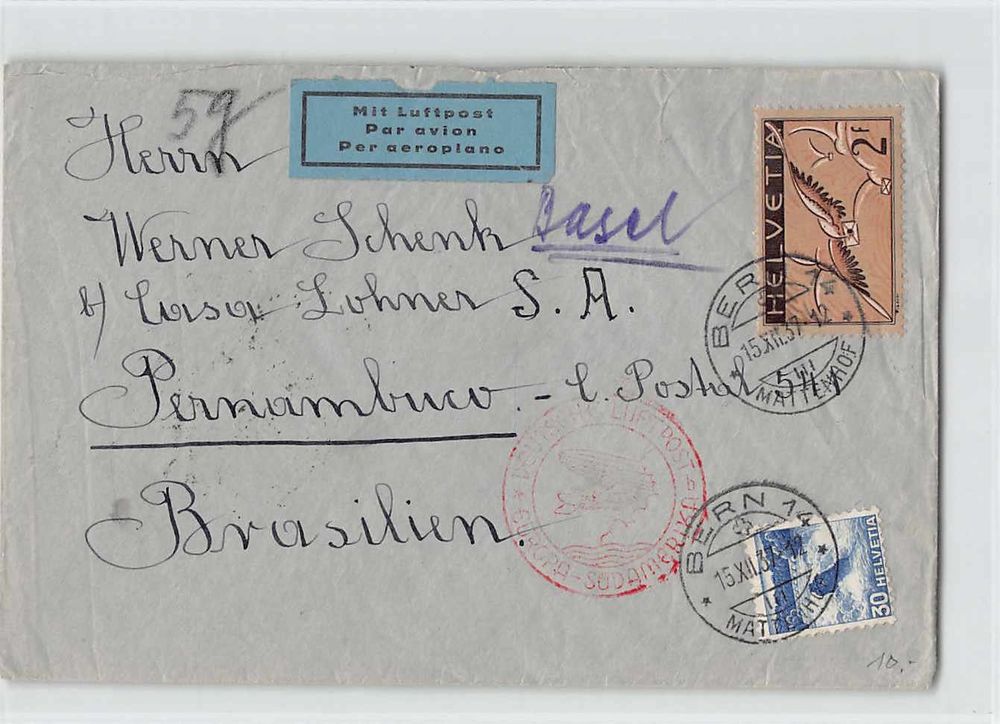 5g
Mit Luftpost
Par avion
Per aeroplano
Herrn
Werner Schenk
Basel
b/ Casa Lohner S. A.
Pernambuco. - C. Postal
Brasilien.
HELVETIA
2F
BERN 14
15.XII.37-12
MATTENHOF
DEUTSCHE LUFTPOST
EUROPA - SÜDAMERIKA
BERN 14
15.XII.37-12
MATTENHOF
30 HELVETIA
10.-